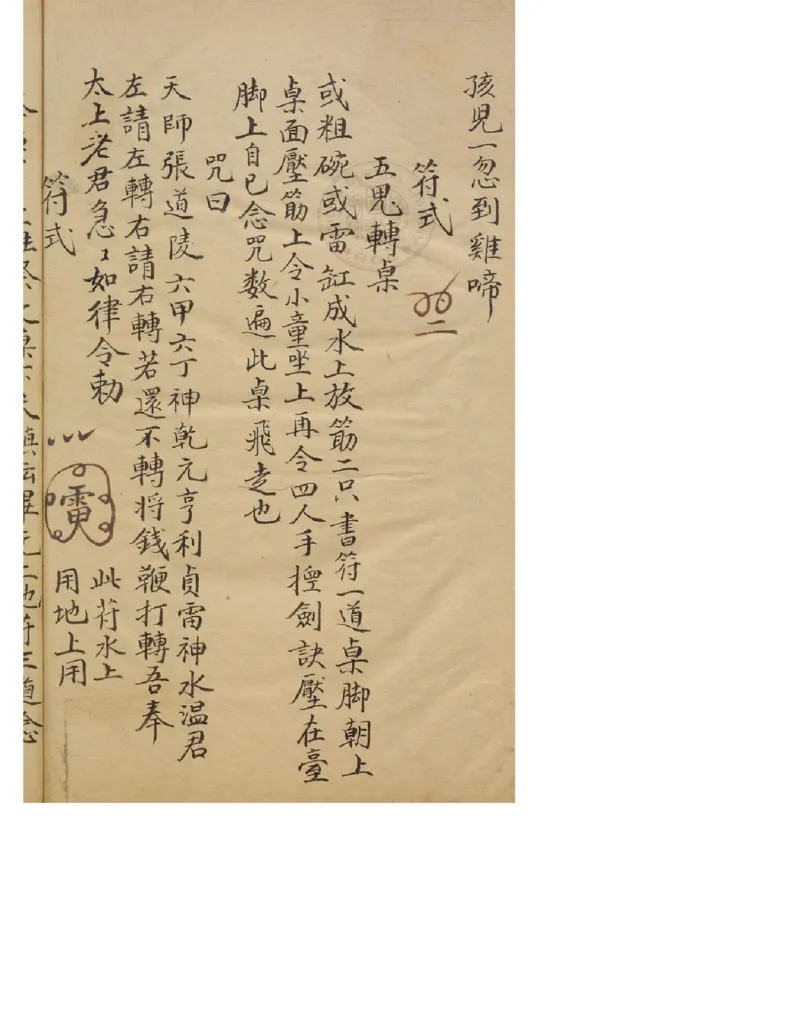 孩児一忽到雞啼
符式
二
五鬼轉桌
或粗碗或雷缸成水上放筯二只書符一道桌脚朝上
桌面壓筯上令小童坐上再令四人手揑劍訣壓在臺
脚上自已念咒数遍此桌飛走也
咒曰
天師張道陵六甲六丁神乾元亨利貞雷神水温君
左請左轉右請右轉若還不轉将錢鞭打轉吾奉
太上老君急〻如律令勅
此符水上
用地上用
符式